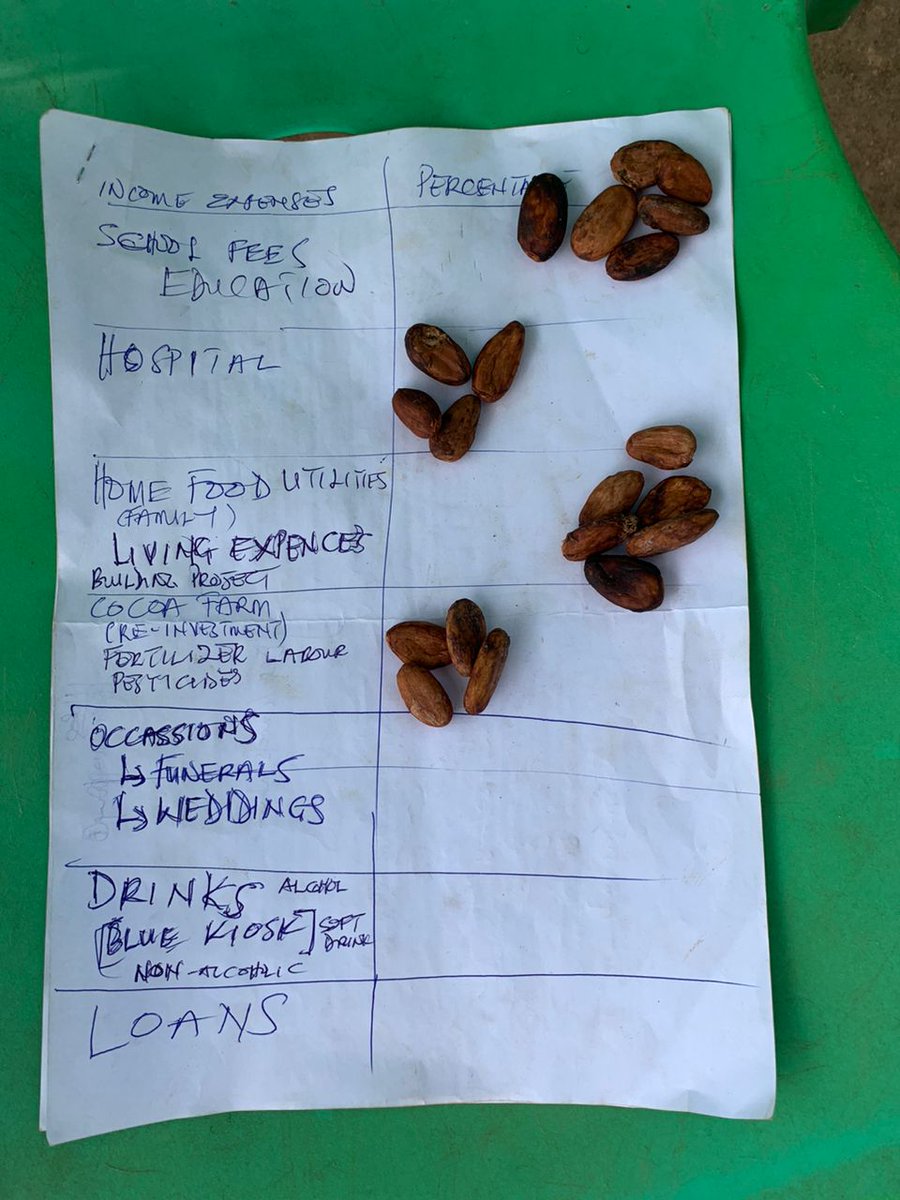 INCOME EXPENSES
PERCENTA
SCHOOL FEES
EDUCATION
HOSPITAL
HOME FOOD UTILITIES
(FAMILY)
LIVING EXPENCES
BUILDING PROJECT
COCOA FARM
(RE-INVESTMENT)
FERTILIZER LABOUR
PESTICIDES
OCCASSIONS
↳ FUNERALS
↳ WEDDINGS
DRINKS ALCOHOL
[BLUE KIOSK] SOFT DRINK
NON-ALCOHOLIC
LOANS